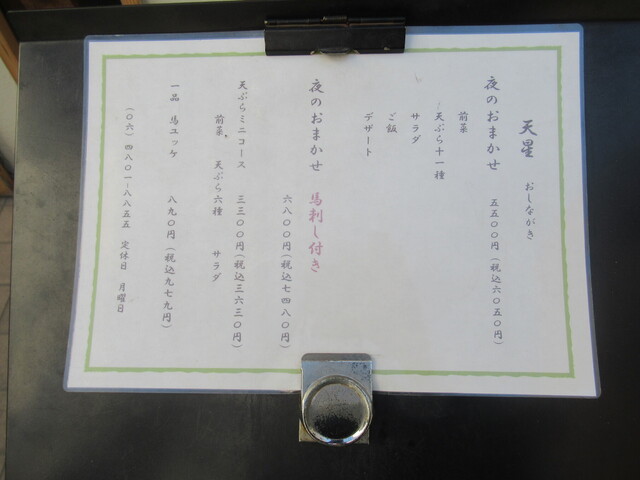 天星　おしながき
夜のおまかせ　五五〇〇円（税込六〇五〇円）
前菜
天ぷら十一種
サラダ
ご飯
デザート
夜のおまかせ　馬刺し付き
六八〇〇円（税込七四八〇円）
天ぷらミニコース　三三〇〇円（税込三六三〇円）
前菜、天ぷら六種　サラダ
一品　馬ユッケ　八九〇円（税込九七九円）
（〇六）四八〇一-八八五五　定休日　月曜日